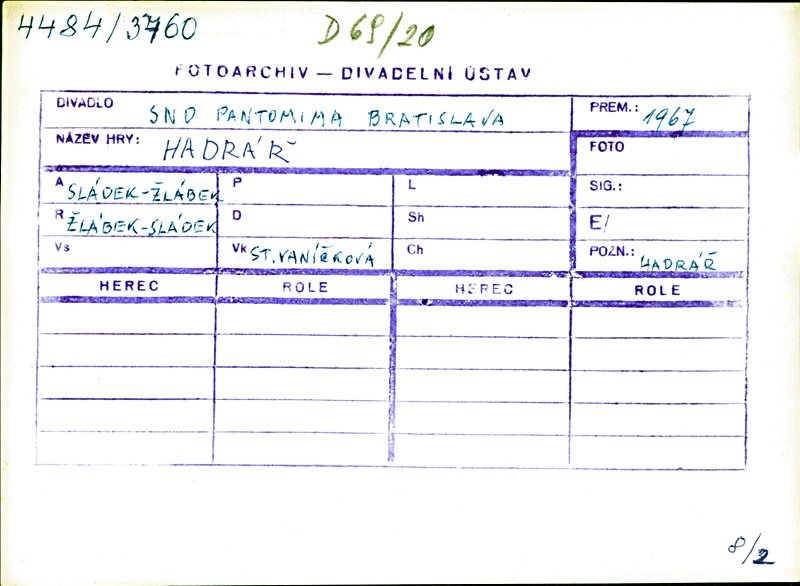 4484/3760 D69/20
FOTOARCHIV — DIVADELNÍ ÚSTAV
DIVADLO SND PANTOMIMA BRATISLAVA PREM.: 1967
NÁZEV HRY: HADRÁŘ FOTO
A SLÁDEK-ŽLÁBEK P L SIG.:
R ŽLÁBEK-SLÁDEK D Sh E/
Vs Vk ST. VANÍČKOVÁ Ch POZN.: HADRÁŘ
HEREC ROLE HEREC ROLE
8/2